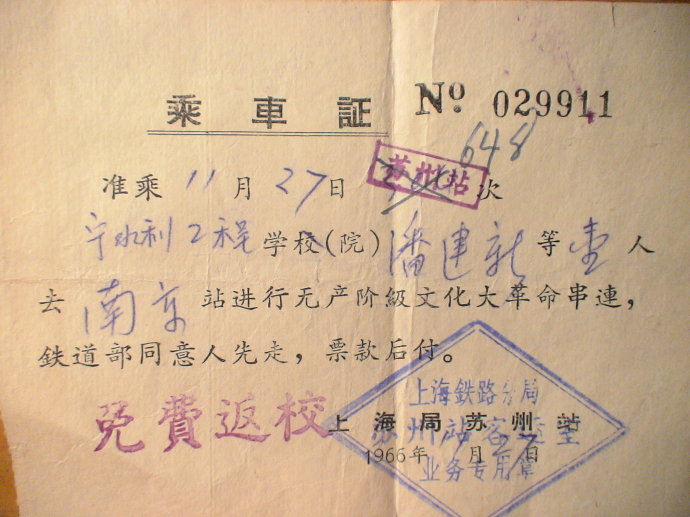 乘車証 Nº 029911
648
准乘 11 月 27 日 苏州站 次
宁水利工程学校(院) 潘建新 等 壹 人
去 南京 站进行无产阶级文化大革命串連，
鉄道部同意人先走，票款后付。
免費返校
上海鉄路分局
上海局苏州站
苏州站客运室
1966年 月 日
业务专用章